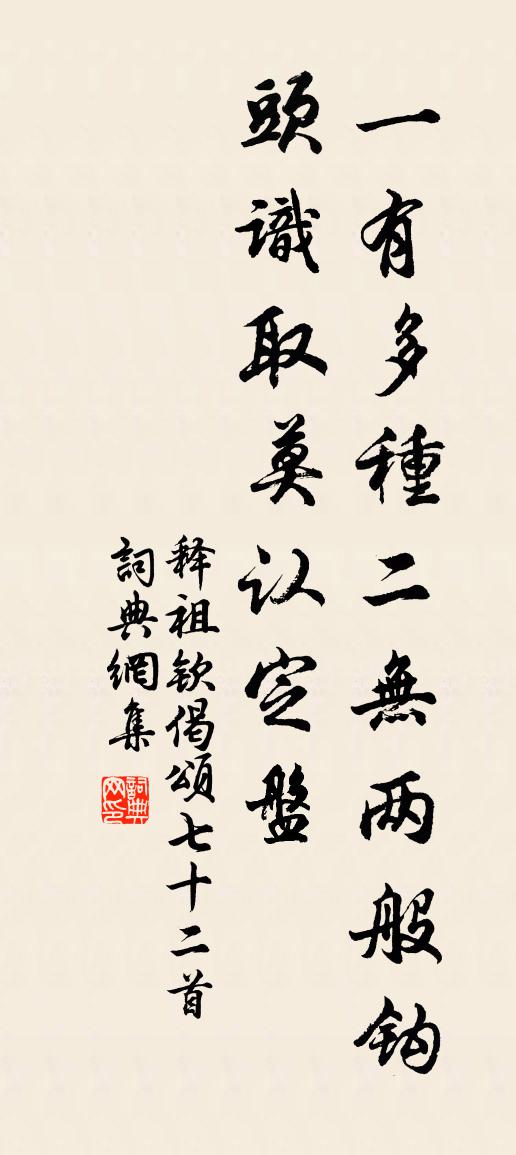 一有多種二無两般钩
頭識取莫认定盤
释祖钦偈頌七十二首
詞典網集
詞典
网印